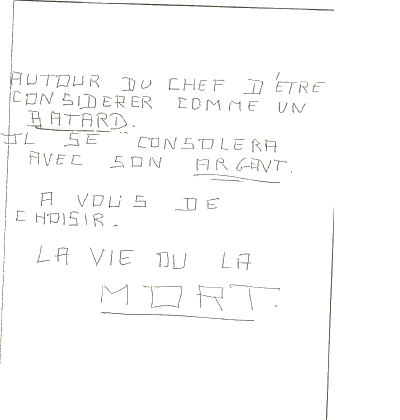 AUTOUR DU CHEF D'ÊTRE
CONSIDERER COMME UN
BATARD.
IL SE CONSOLERA
AVEC SON ARGENT.
A VOUS DE
CHOISIR.
LA VIE OU LA
MORT.